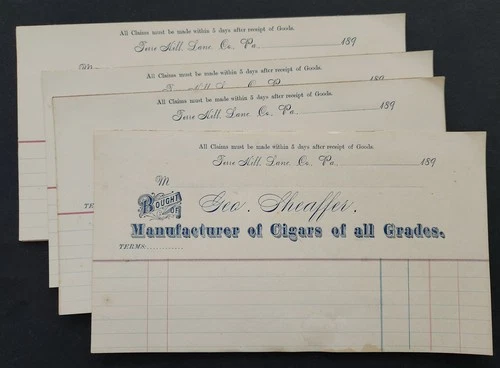 All Claims must be made within 5 days after receipt of Goods.
Terre Hill, Lane. Co., Pa. 189
M
All Claims must be made within 5 days after receipt of Goods.
189
All Claims must be made within 5 days after receipt of Goods.
Terre Hill, Lane. Co., Pa. 189
TERMS
All Claims must be made within 5 days after receipt of Goods.
Terre Hill, Lane. Co., Pa. 189
M
BOUGHT OF
Geo. Sheaffer.
Manufacturer of Cigars of all Grades.
TERMS